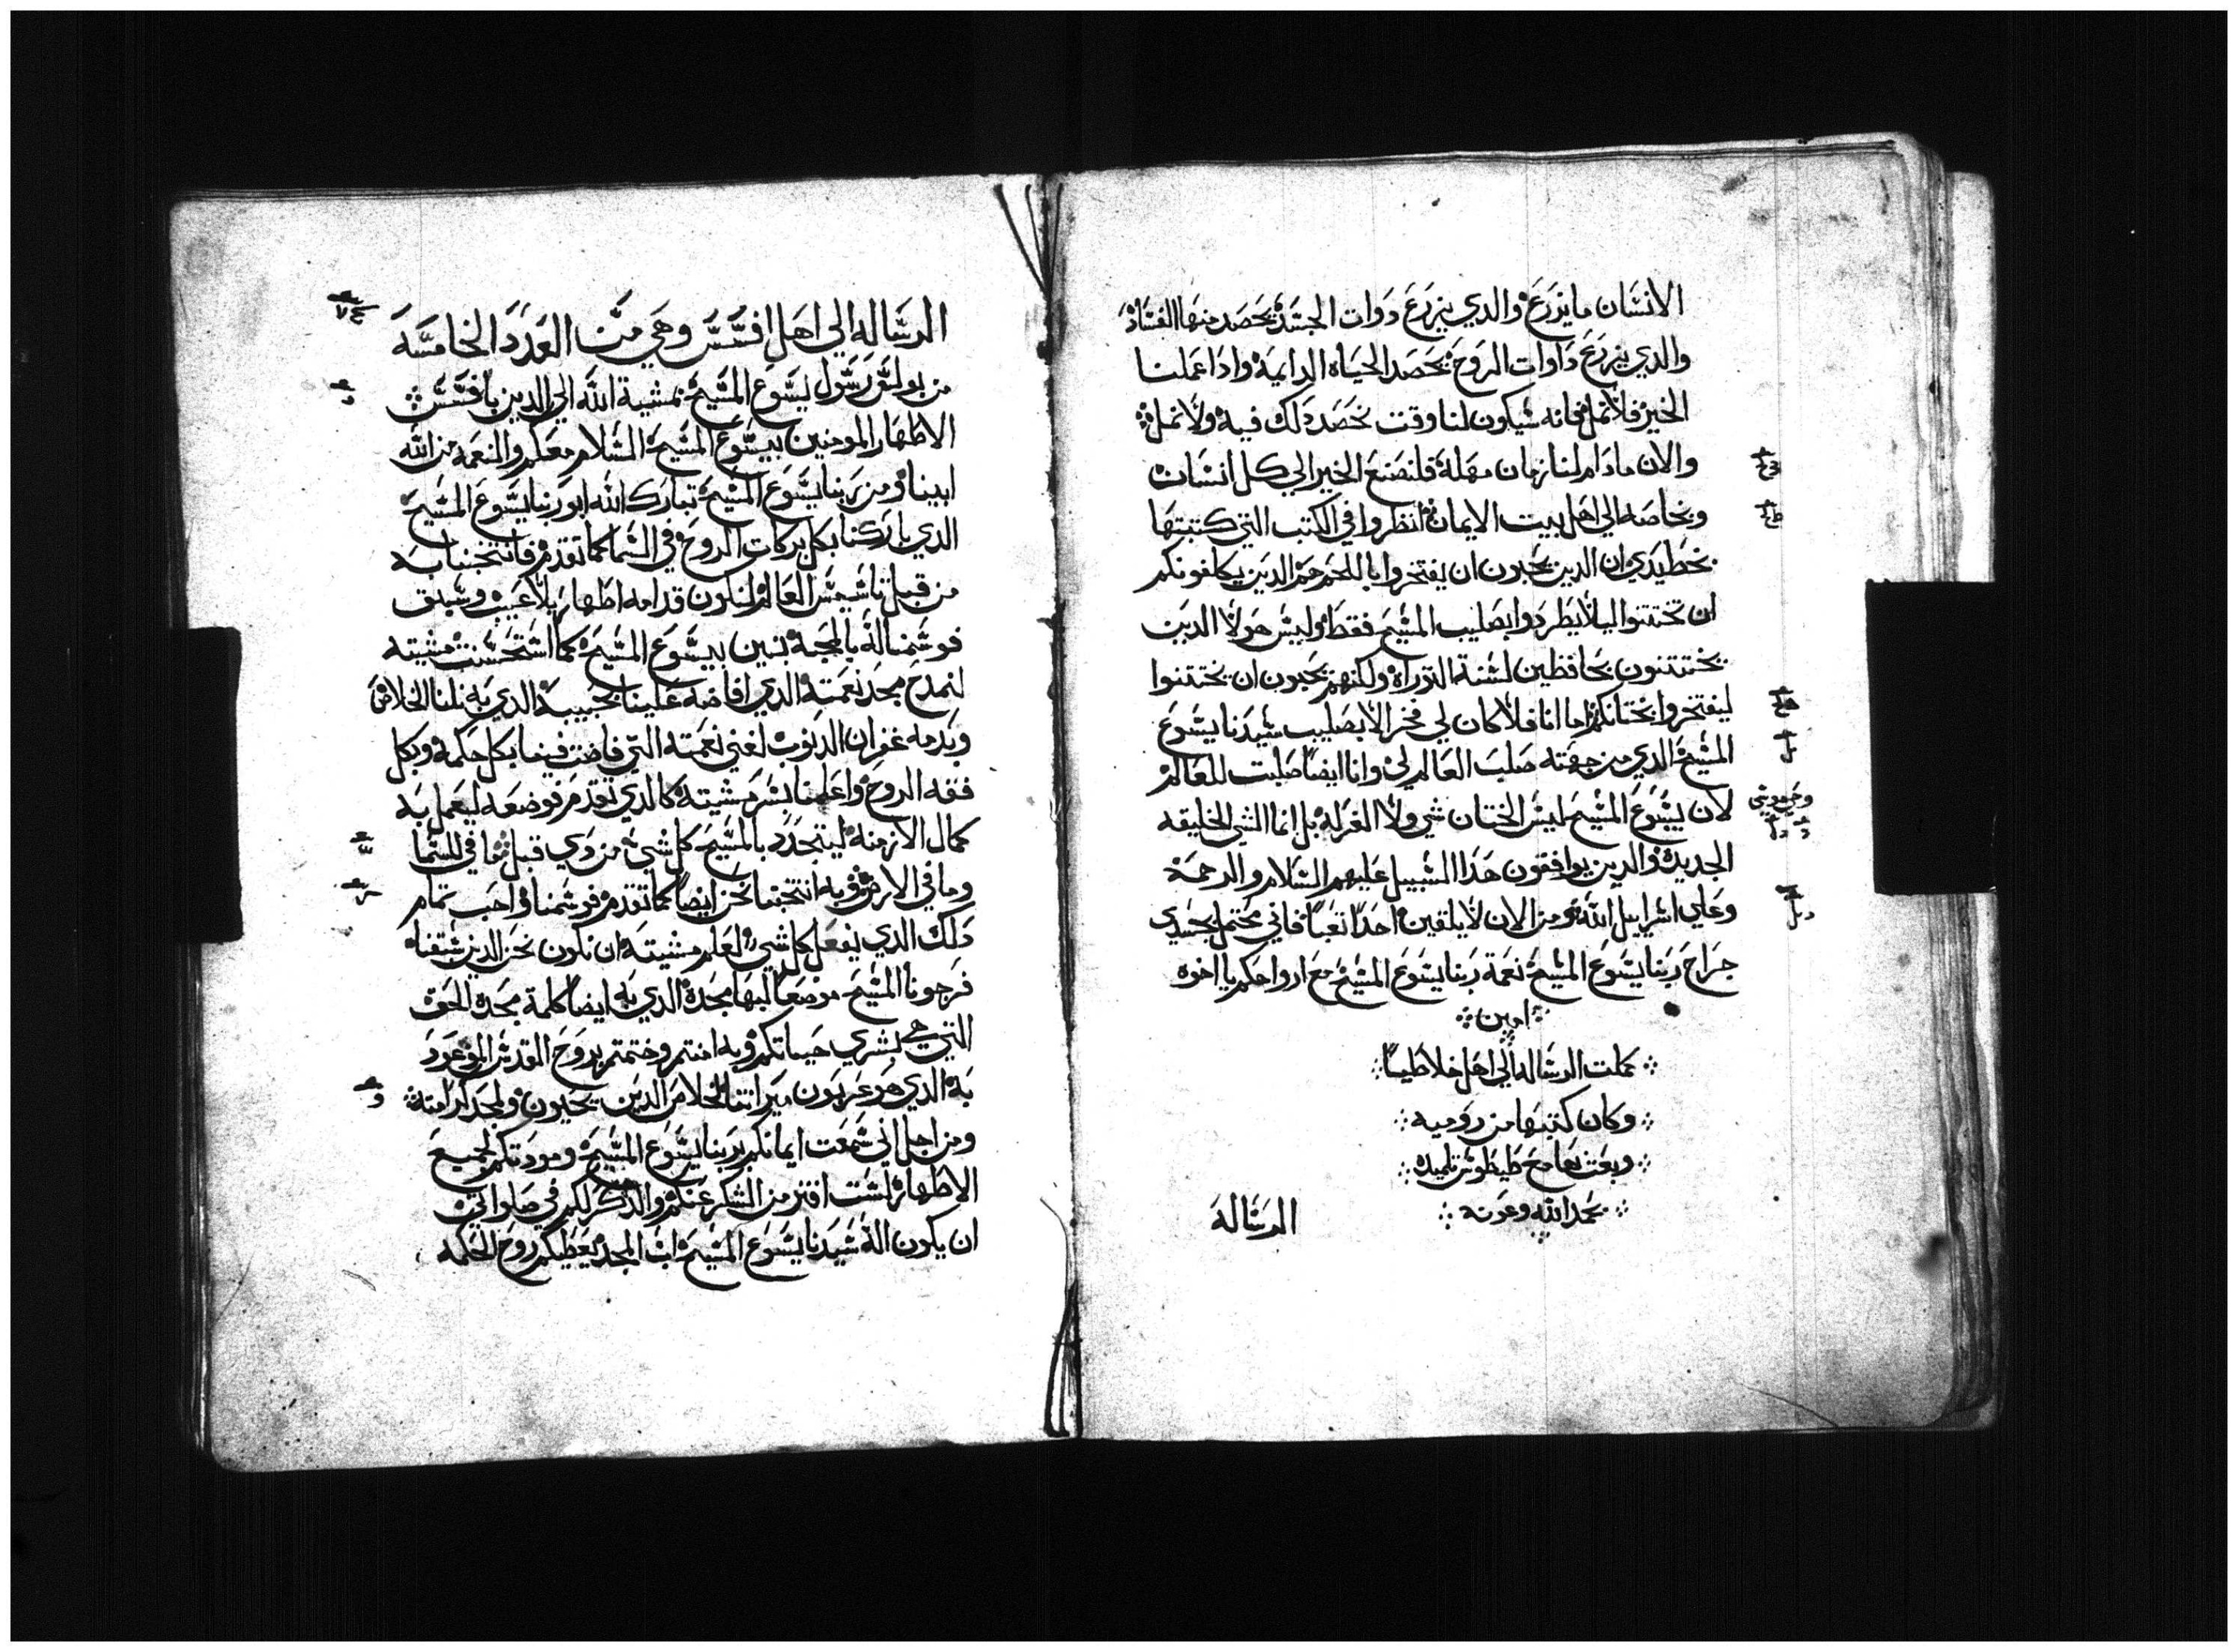 الانسان ما يزرع والدي يزرع دوات الجسد يحصد منها الفساد
والدي يزرع داوات الروح يحصد الحياه الدايمة وادا عملنا
الخير فلا نمل فانه سيكون لنا وقت نحصد دلك فيه ولا نمل
والان مادام لنا زمان مهلة فلنصنع الخير الي كل انسان
وبخاصه الي اهل بيت الايمان انظروا في الكتب التي كتبتها
بخط يدي ان الدين يحبون ان يفتخروا باللحم هم الدين يكلفونكم
ان تختتنوا ليلا يطردوا بصليب المسيح فقط وليس هولا الدين
يختتنون بحافظين لسنة التوراه ولكنهم يحبون ان يختتنوا
ليفتخروا بختانكم اما انا فلا كان لي فخر الا بصليب سيدنا يسوع
المسيح الدي من جهته صلب العالم لي وانا ايضا صلبت للعالم
لان يسوع المسيح ليس الختان شي ولا الغرلة بل انما الشي الخليقه
الجديدة والدين يوافقون هدا السبيل عليهم السلام والرحمة
وعلي اسراييل الله ومن الان لا يلقين احدا تعبا فاني محتمل بجسدي
جراح ربنا يسوع المسيح نعمة ربنا يسوع المسيح مع ارواحكم يا اخوه
امين
كملت الرساله الي اهل غلاطيا
وكان كتبها من روميه
وبعت بها مع طيطوس تلميده
بحمد الله وعونه
الرسالة
الرساله الي اهل افسس وهي من العدد الخامسة
من بولس رسول يسوع المسيح بمشية الله الي الدين بافسس
الاطهار المومنين بيسوع المسيح السلام معكم والنعمة من الله
ابينا ومن ربنا يسوع المسيح تبارك الله ابو ربنا يسوع المسيح
الدي باركنا بكل بركات الروح في السما كما تقدم فانتخبنا به
من قبل تاسيس العالم لنكون قدامه اطهار بلا عيب وسبق
فوسمنا له بالمحبة بنين بيسوع المسيح كما استحسنت مشيته
لنمدح مجد نعمته الدي افاضه علينا بحبيبه الدي به نلنا الخلاص
وبدمه غفران الدنوب لغني نعمته التي فاضت فينا بكل حكمة وبكل
فقه الروح واعلمنا بسر مشيته كالدي تقدم فوضعه ليعمل به
كمال الازمنة ليتجدد بالمسيح كل شي من دي قبل مما في السما
وما في الارض وبه انتخبنا نحن ايضا كما تقدم فوسمنا واحب تمام
دلك الدي يفعل كل شي لعلم مشيته ان نكون نحن الدين سبقنا
فرجونا المسيح موضعا لبها مجدة الدي به ايضا كلمة مجده الحق
التي هي بشري حياتكم وبه امنتم وختمتم بروح القدس الموعود
به الدي هو عربون ميراتنا لخلاص الدين يحيون ولمجد كرامته
ومن اجل اني سمعت ايمانكم بربنا يسوع المسيح ومودتكم لجميع
الاطهار لست افتر من الشكر عنكم والدكر لكم في صلواتي
ان يكون اله سيدنا يسوع المسيح اب المجد يعطيكم روح الحكمه